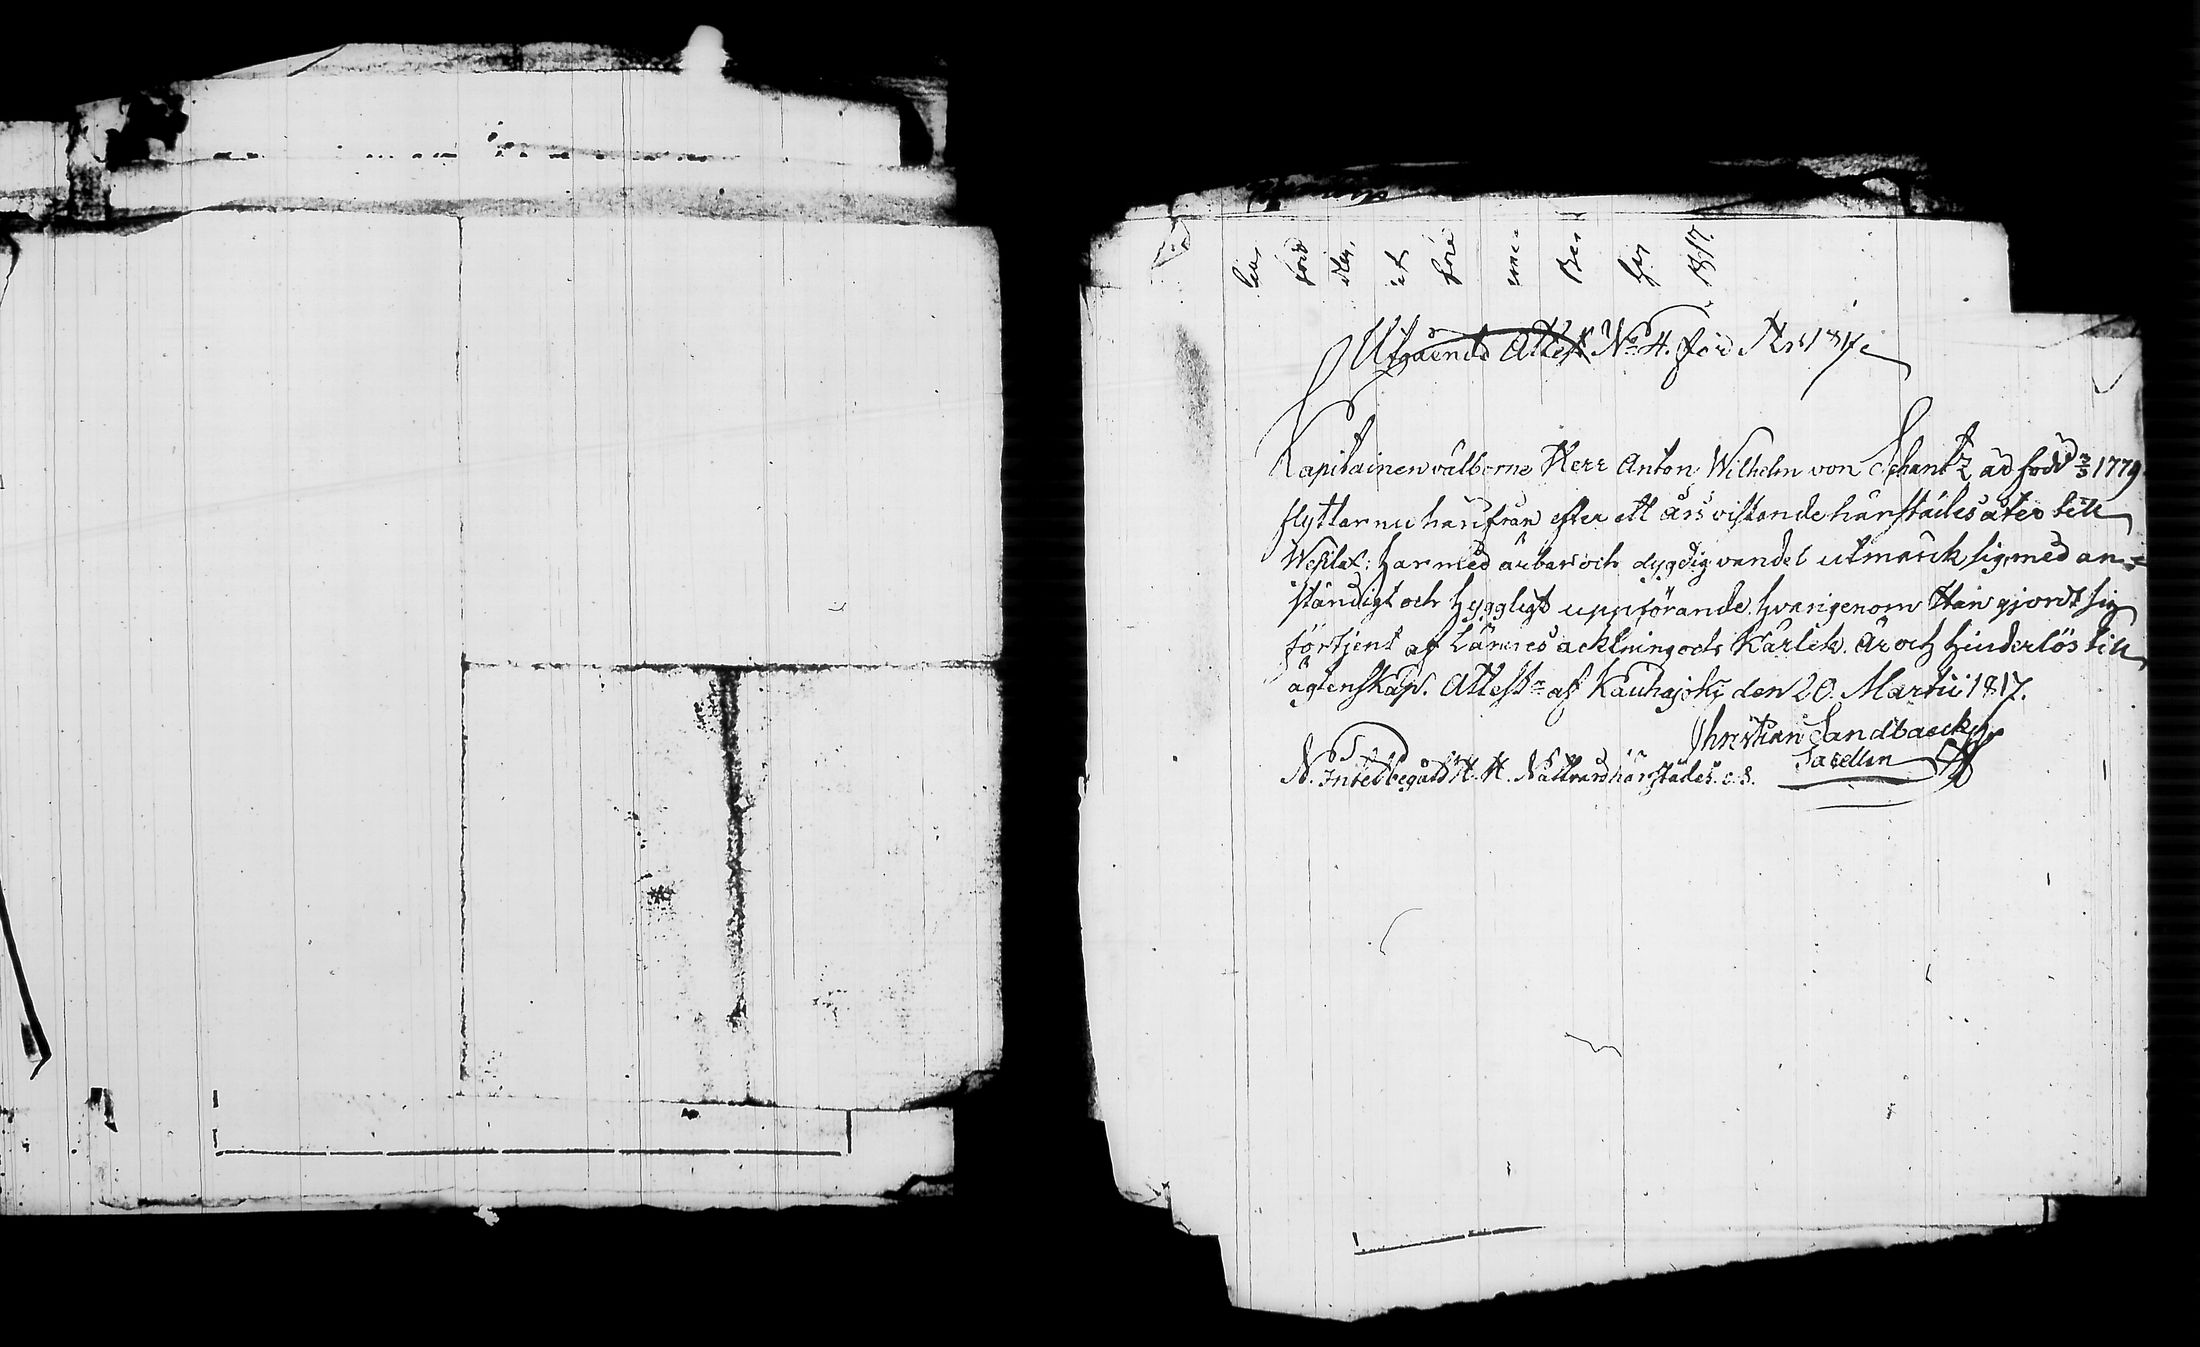 1817.
Utgående Attest No 4. för År 1817.
Kapitainen välborne Herr Anton Wilhelm von Schantz är född 2/3 1779
flyttar nu härifrån efter ett års vistande härstädes åter till
Wesilax: har med ärbar och dygdig vandel utmärk sig, med an-
ständigt och hyggligt uppförande, hvarigenom Han gjordt sig
förtjent af Lännes acktning och Kärlek. är och hinderlös till
ägtenskap. Attest- af Kauhajoki den 20. Martii 1817.
Christian Sandbaeck
Sacellan
N. Intet begått H. H. Nattvard härstädes. c. s.